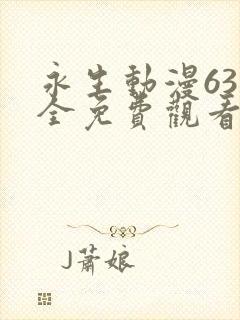 永生動漫63
全免費觀看
J蕭娘